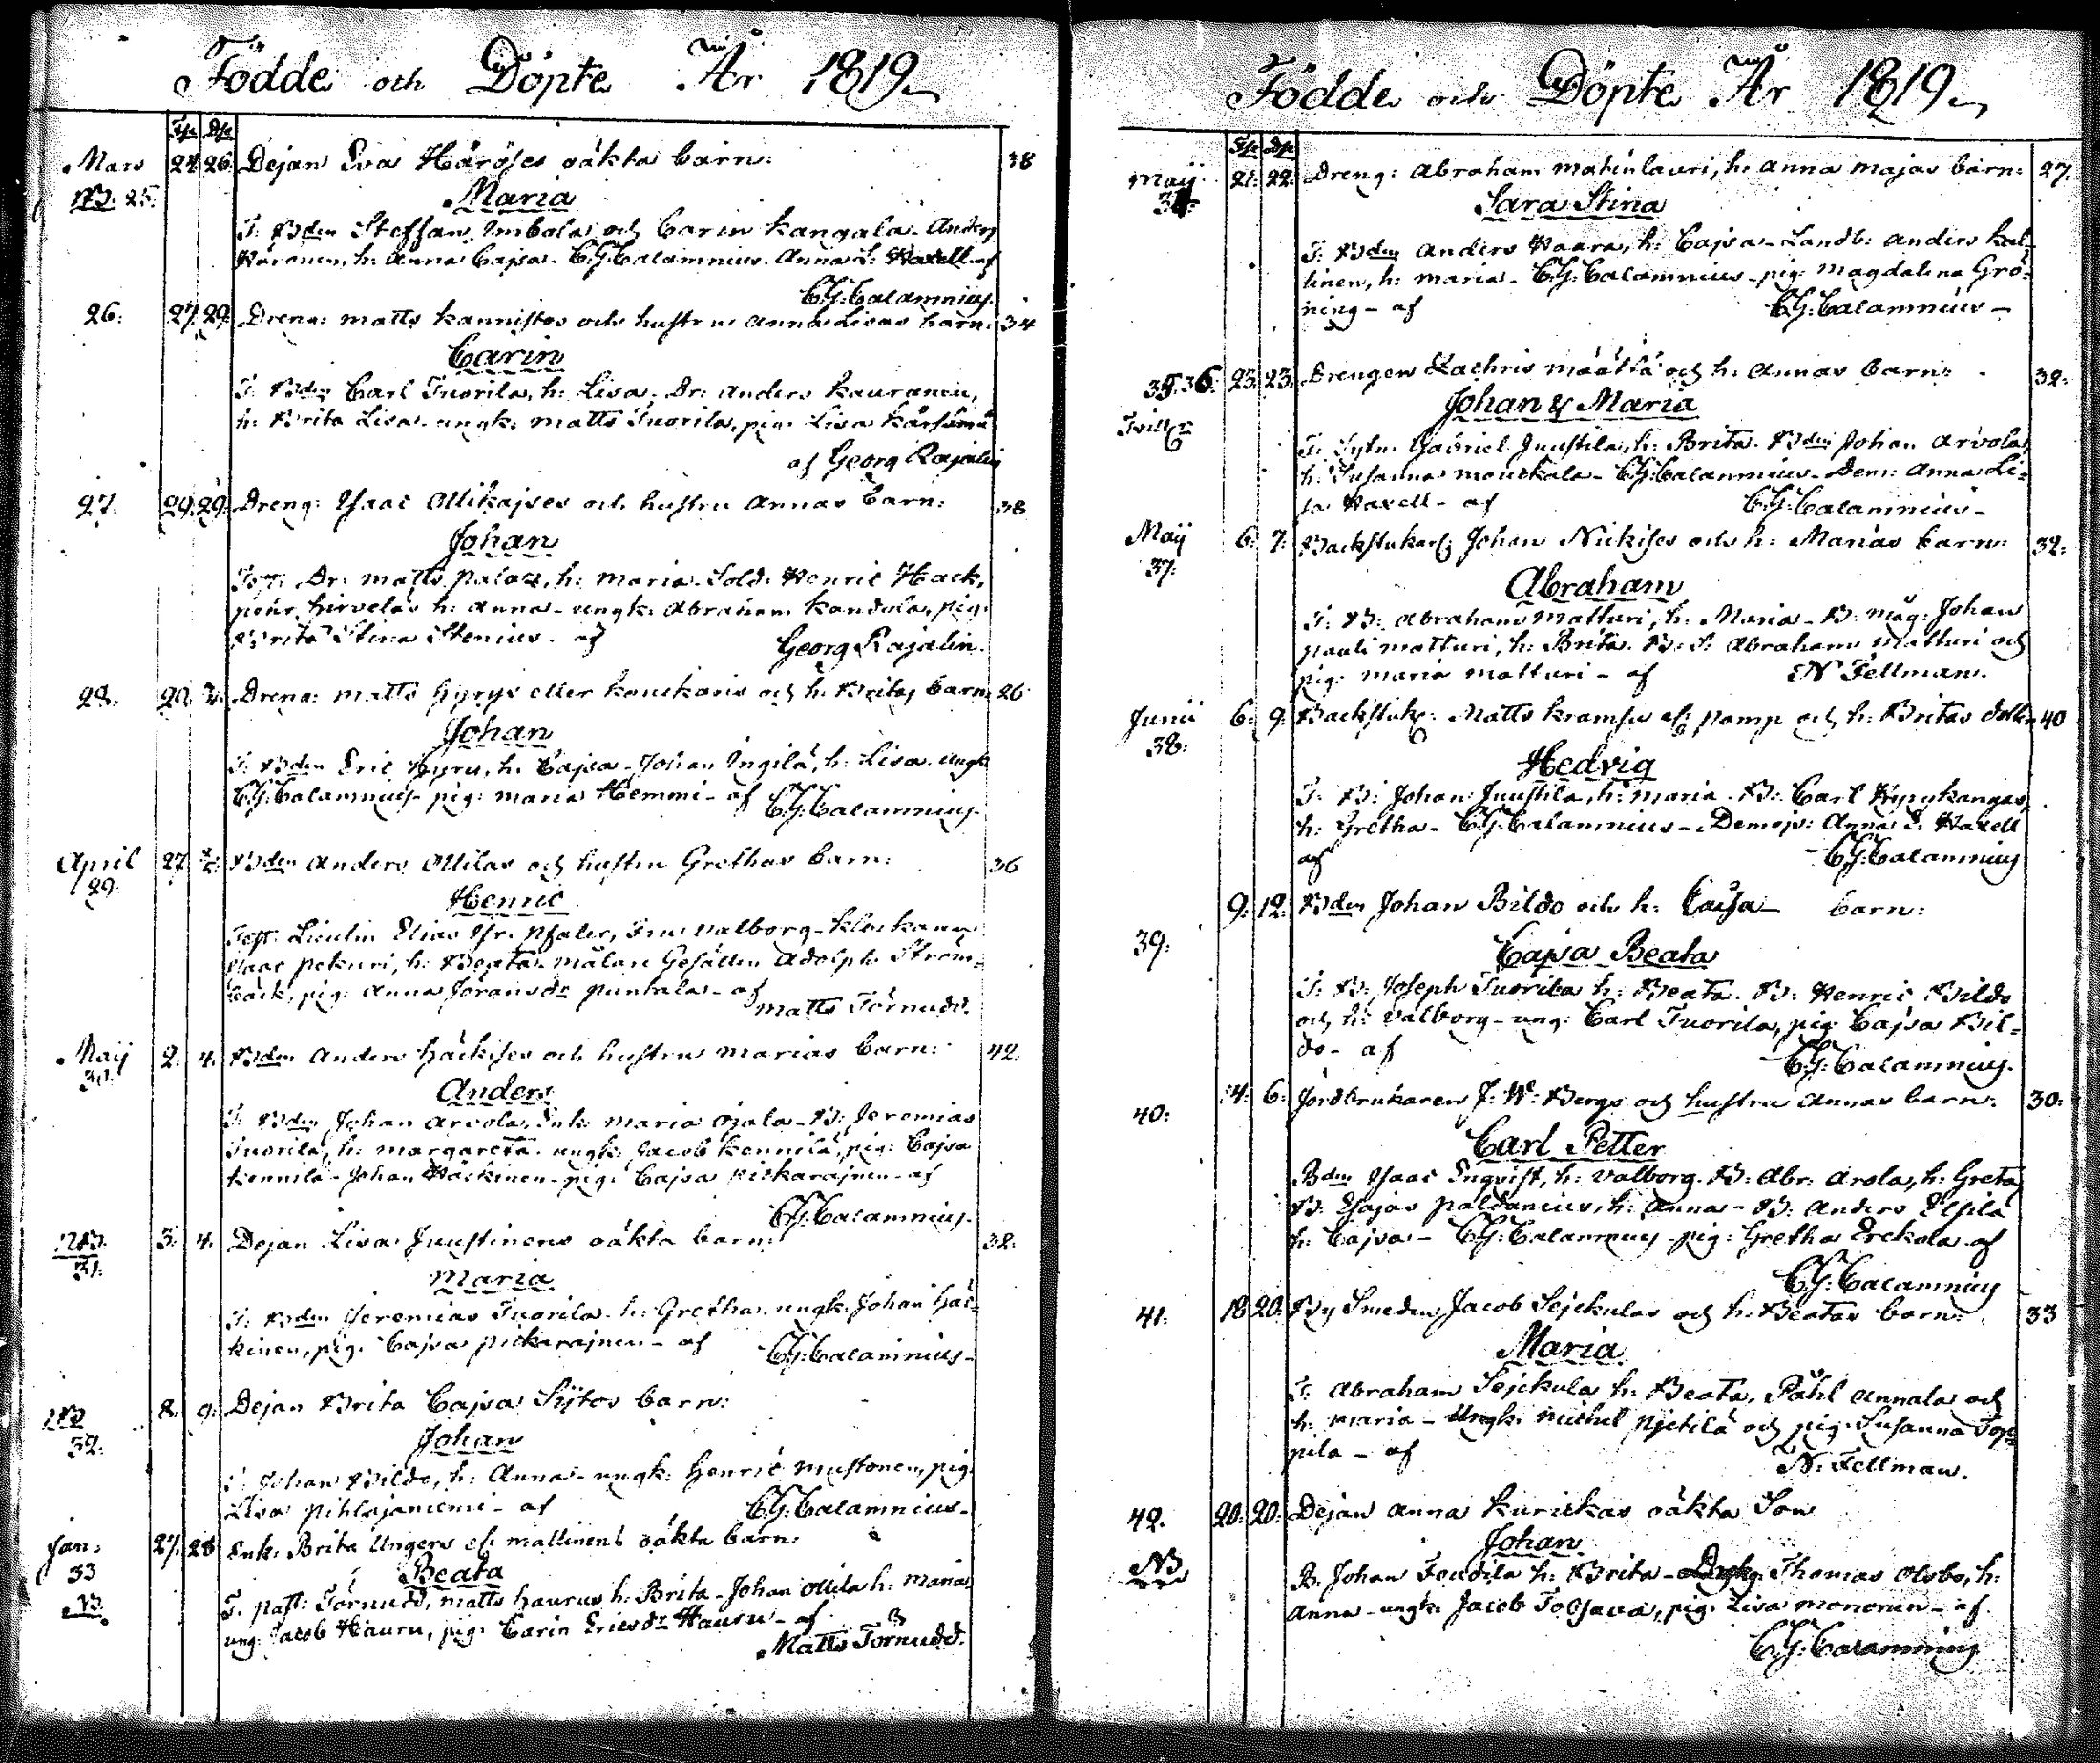 Födde och Döpte År 1819
Mars 24. 26. Dejan Eva Häröses oäkta barn: 38
NB. 25. Maria
T: Bden Steffan Imbola och Carin Kangala. Anders
h: Anna Cajsa. C.G. Calamnius. Anna L: Haxell af
C.G. Calamnius.
26: 27. 29. Dreng: Matts Kannistos och hustru Anna Lisas barn: 34
Carin
T: Bden Carl Tuorila, h: Lisa. Dr: Anders Kauranen,
h: Brita Lisa. ungk: Matts Tuorila, pig: Lisa
af Georg Rajalin
27. 29. 29. Dreng: Isaac Ollikajses och hustru Annas barn: 38
Johan
Dr: Matts h: Maria. Sold: Henric Hack,
h: Anna. ungk: Abraham Kandola, pig:
Brita Stina Stenius. af Georg Rajalin.
28. Dreng: Matts Hyrys eller och h: Britas barn 26
Johan
T: Bden Eric Hyry, h: Cajsa. Johan Ingilä, h: Lisa. ungk
C.G. Calamnius. pig: Maria Hemmi. af C.G. Calamnius.
April 27 Bden Anders Ollilas och hustru Grethas barn: 36
29. Henric
Elias Fru Valborg. Klockaren
Isaac Pekuri, h: Beata. målare Gesällen Adolph Ström-
bäck, pig: Anna af
Matts Törnudd.
Maij 2. 4. Bden Anders Häckises och hustru Marias barn: 42.
30. Anders
T: Bden Johan Arvola, Enk: Maria Ojala. B: Jeremias
Tuorila, h: Margareta. ungk: Jacob Kennilä, pig: Cajsa
Kennilä. Johan Häckinen. pig: Cajsa Pickarajnen. af
C.G. Calamnius.
NB. 3. 4. Dejan Lisa Juustinens oäkta barn: 32.
31. Maria
T: Bden Jeremias Tuorila. h: Gretha. ungk: Johan Häc-
kinen, pig: Cajsa Pickarajnen. af C.G. Calamnius.
NB 8. 9. Dejan Brita Cajsa Sijtos barn:
32. Johan
T: Johan Bildo, h: Anna. ungk: Henric Mustonen, pig.
Lisa Pihlajaniemi. af C.G. Calamnius.
Jan: 27. 28 Enk: Brita Ungers el: Mallinens oäkta barn:
33 Beata
T. past: Törnudd, Matts Haurus h: Brita. Johan Ollila h: Maria
NB. ung: Jacob Hauru, pig: Carin Ericsdr Hauru. af
Matts Törnudd.
Födde och Döpte År 1819
Maij 21. 22. Dreng: Abraham Matinlauri, h: Anna Majas barn: 27.
34. Sara Stina
T: Bden Anders Haara, h: Cajsa. Landb: Anders Kal-
linen, h: Maria. C.G. Calamnius. pig: Magdalena Grö-
ning. af C.G. Calamnius.
35. 36. 23. 23. Drengen Zachris Määttä och h: Annas barn: 32.
Tvill: Johan & Maria
T: Sytn: Gabriel Juustila, h: Brita. Bden Johan Arvola,
h: Susanna C.G. Calamnius. Dem: Anna Li-
sa Haxell. af C.G. Calamnius.
Maij 6. 7. Backstukarl: Johan Nickises och h: Marias barn: 32.
37. Abraham
T: B: Abraham Matturi, h: Maria. B: måg: Johan
Pauli Matturi, h: Brita. B: S: Abraham Matturi och
pig: Maria Matturi. af N Fellman.
Junii 6. 9. Backstuk: Matts Kramsu el: Pamp och h: Britas dotter 40
38. Hedvig
T: B: Johan Juustila, h: Maria. B: Carl Kypykangas,
h: Gretha. C.G. Calamnius. Demojs: Anna L. Haxell
af C.G. Calamnius
9. 12. Bden Johan Bildo och h: Caisa barn:
39. Cajsa Beata
T: B: Joseph Tuorila h: Beata. B: Henric Bildo
och h: Valborg. ung: Carl Tuorila, pig: Cajsa Bil-
do. af C.G. Calamnius.
40: 4. 6. Jordbrukaren J: W: Bergs och hustru Annas barn: 30:
Carl Petter
Bden Isaac Enqvist, h: Valborg. B: Abr: Arola, h: Greta
B: Esajas Paldanius, h: Anna. B: Anders
h: Cajsa. C.G. Calamnius. pig: Gretha Erckola. af
C.G. Calamnius
41. 18 20. By Smeden Jacob Sejckulas och h: Beatas barn: 33
Maria
T: Abraham Sejckula h: Beata, Påhl Annala och
h: Maria. Ungk: Michel Pjetilä och pig: Susanna Top-
pila. af N. Fellman.
42. 20. 20. Dejan Anna Kurickas oäkta Son
Johan
NB B: Johan h: Brita. Thomas h:
Anna. ungk: Jacob pig: Lisa Mononen. af
C.G. Calamnius